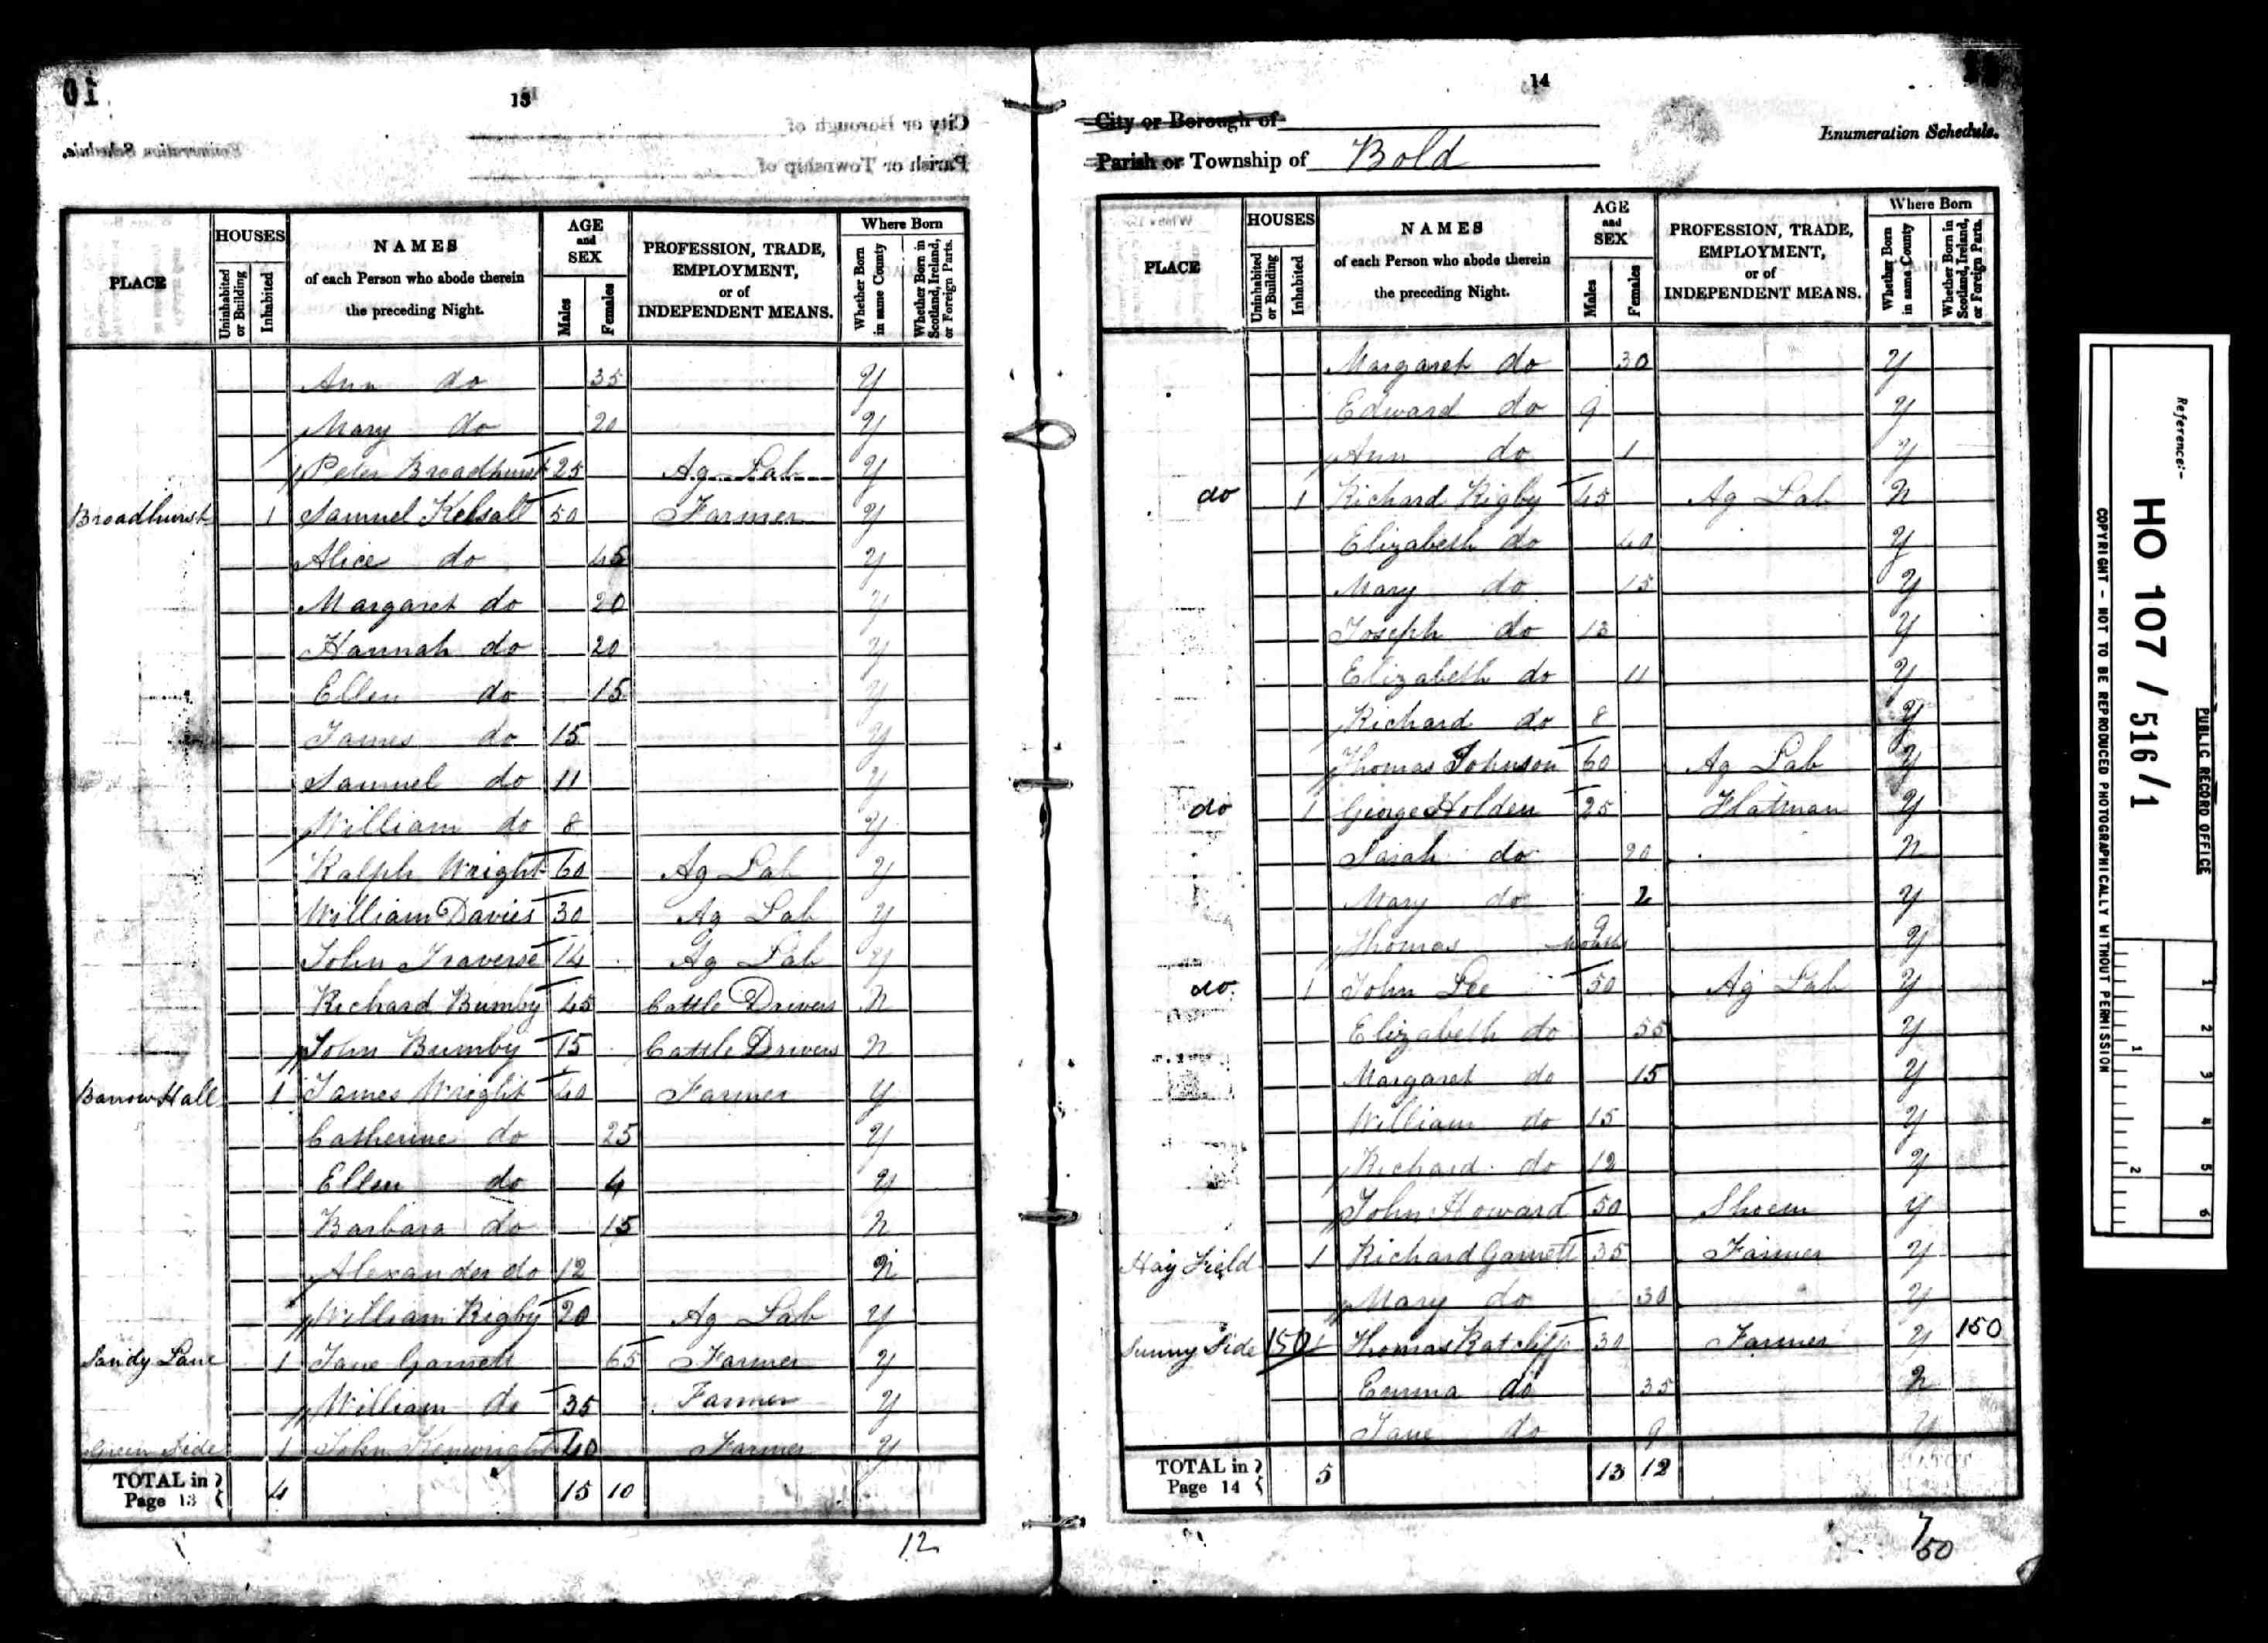 10
13
City or Borough of
Parish or Township of
Enumeration Schedule.
PLACE
HOUSES
Uninhabited or Building
Inhabited
NAMES
of each Person who abode therein
the preceding Night.
AGE and SEX
Males
Females
PROFESSION, TRADE, EMPLOYMENT, or of INDEPENDENT MEANS.
Where Born
Whether Born in same County
Whether Born in Scotland, Ireland, or Foreign Parts.
Ann do 35 Y
Mary do 20 Y
Peter Broadhurst 25 Ag Lab Y
Broadhurst 1 Samuel Kelsall 50 Farmer Y
Alice do 45 Y
Margaret do 20 Y
Hannah do 20 Y
Ellen do 15 Y
James do 15 Y
Samuel do 11 Y
William do 8 Y
Ralph Wright 60 Ag Lab Y
William Davies 30 Ag Lab Y
John Traverse 14 Ag Lab Y
Richard Bumby 45 Cattle Drivers N
John Bumby 15 Cattle Drivers N
Barrow Hall 1 James Wright 40 Farmer Y
Catherine do 25 Y
Ellen do 4 Y
Barbara do 15 N
Alexander do 12 N
William Rigby 20 Ag Lab Y
Sandy Lane 1 Jane Garnett 65 Farmer Y
William do 35 Farmer Y
Green Side 1 John Kenwright 40 Farmer Y
TOTAL in Page 13 4 15 10
12
14
City or Borough of
Parish or Township of Bold
Enumeration Schedule.
PLACE
HOUSES
Uninhabited or Building
Inhabited
NAMES
of each Person who abode therein
the preceding Night.
AGE and SEX
Males
Females
PROFESSION, TRADE, EMPLOYMENT, or of INDEPENDENT MEANS.
Where Born
Whether Born in same County
Whether Born in Scotland, Ireland, or Foreign Parts.
Margaret do 30 Y
Edward do 9 Y
Ann do 1 Y
do 1 Richard Rigby 45 Ag Lab N
Elizabeth do 40 Y
Mary do 15 Y
Joseph do 13 Y
Elizabeth do 11 Y
Richard do 8 Y
Thomas Johnson 60 Ag Lab Y
do 1 George Holden 25 Flatman Y
Sarah do 20 N
Mary do 2 Y
Thomas 9 Months Y
do 1 John Lee 50 Ag Lab Y
Elizabeth do 55 Y
Margaret do 15 Y
William do 15 Y
Richard do 12 Y
John Howard 50 Y
Hay Field 1 Richard Garnett 35 Farmer Y
Mary do 30 Y
Sunny Side 150 1 Thomas Ratcliffe 30 Farmer Y 150
Emma do 35 N
Jane do 9 Y
TOTAL in Page 14 5 13 12
7/50
Reference:-
HO 107 / 516/1
PUBLIC RECORD OFFICE
COPYRIGHT - NOT TO BE REPRODUCED PHOTOGRAPHICALLY WITHOUT PERMISSION
1 2 3 4 5 6
1 2